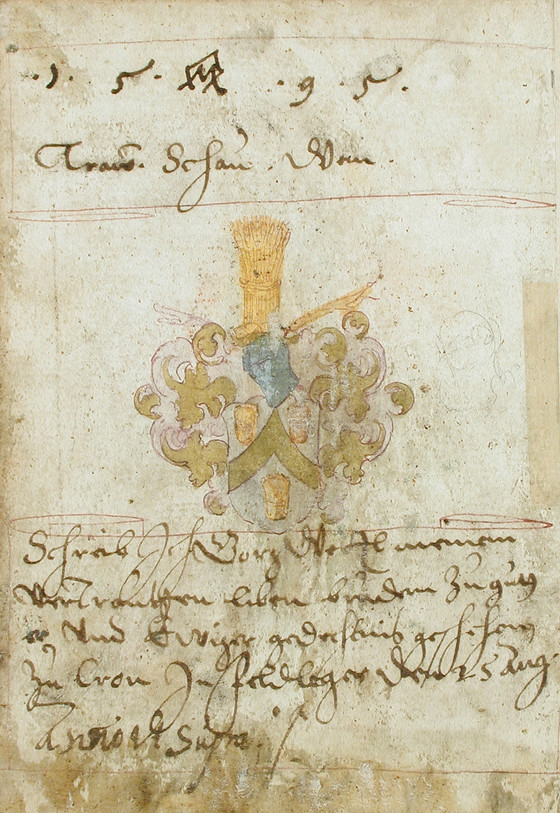 · 1 · 5 · · 9 · 5 ·
Traw · Schau · Wem ·
Schreib Ich Gorg meinem
vertrautgen liben brudern zu gutt
er Und Ewiger gedechtnis geschehen
Zu Cron In feldleger den 25 Aug:
Anno Ut Supra.